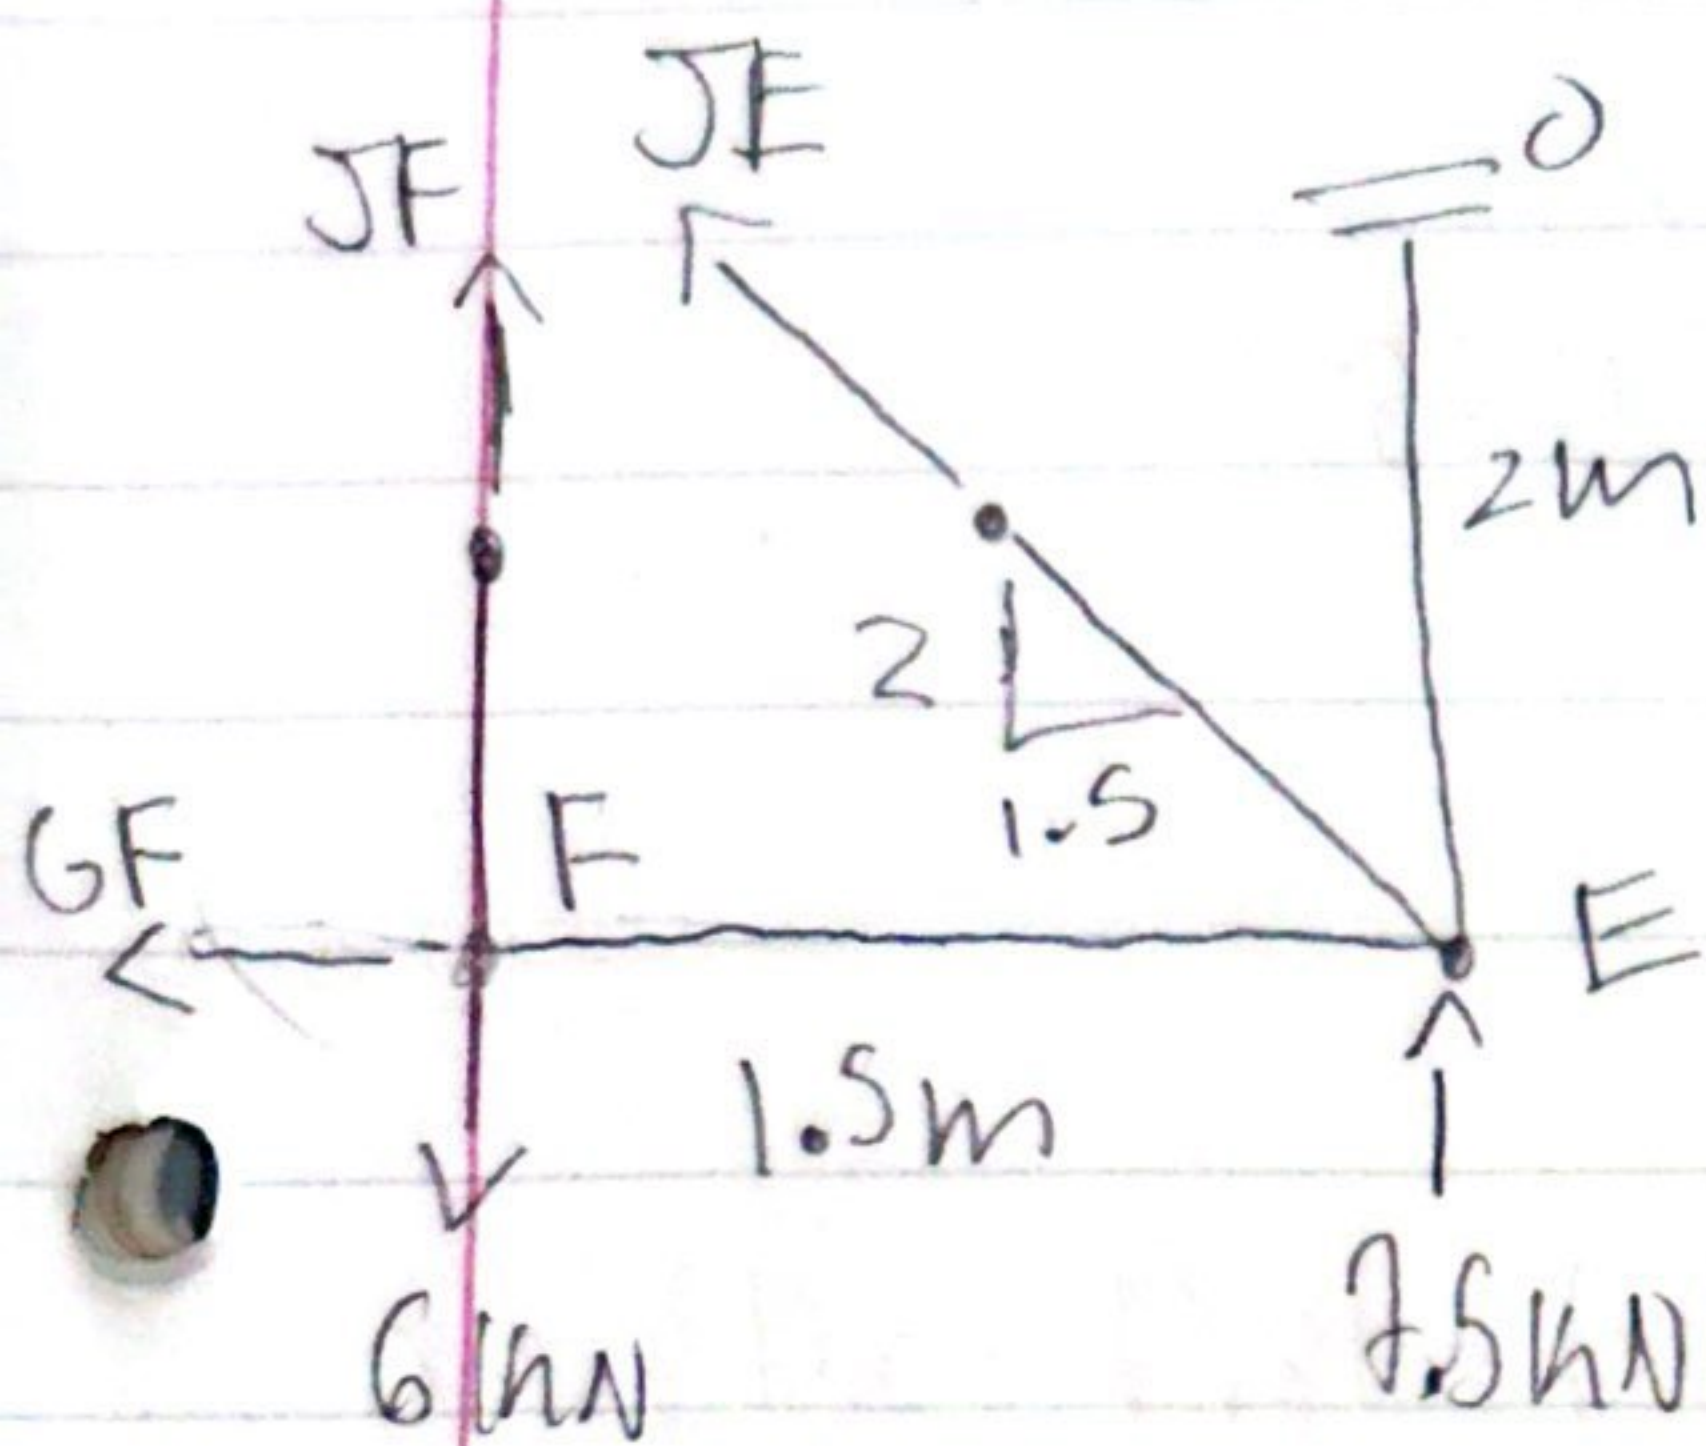 JE
JF
0
2m
2
1.5
GF
F
E
1.5m
6 kN
7.5 kN